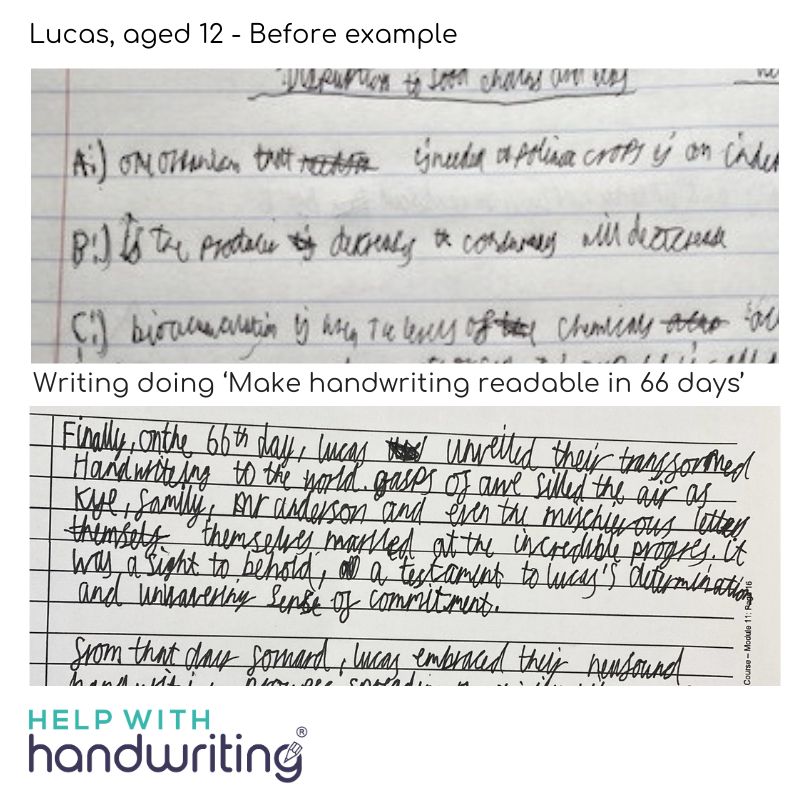 Lucas, aged 12 - Before example
Disruption to food chains and
A:) an organism that is needed to pollinate crops is an
B:) If the producer is decreases the consumers will decrease
C:) bioaccumulation is when the levels of the chemicals
Writing doing ‘Make handwriting readable in 66 days’
Finally, on the 66th day, lucas unveiled their transformed
Handwriteing to the world. gasps of awe filled the air as
Kye, family, Mr anderson and even the mischievous letters
themself themselves marvled at the incredible progres. it
was a sight to behold, a testament to lucas's determination
and unwavering sense of commitment.
from that day forward, lucas embraced their newfound
Course – Module 11: Page 16
HELP WITH
handwriting®